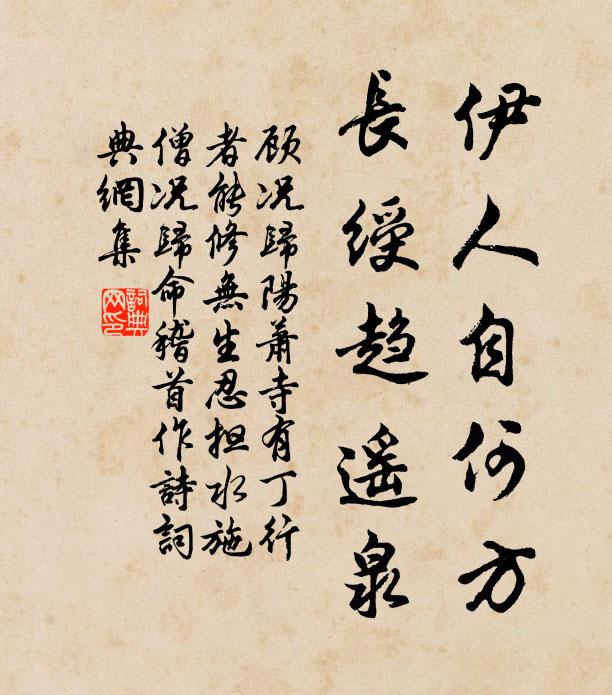 伊人自何方
長綬趨遥泉
顾况歸陽萧寺有丁行
者能修無生忍担水施
僧况歸命稽首作詩詞
典網集
詞典
网印